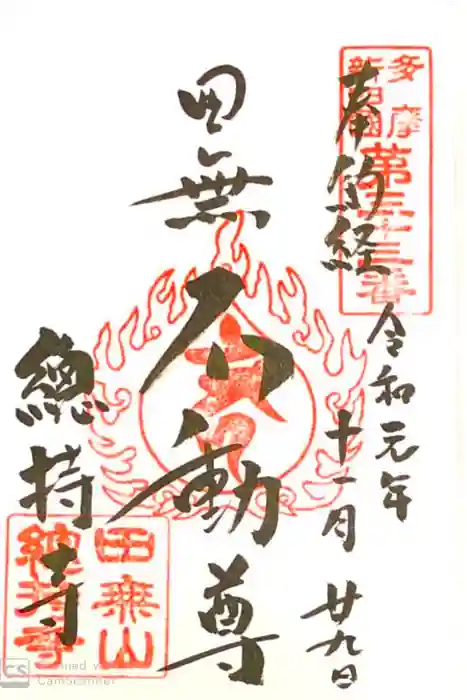 多摩
新四國
第三十三番
奉納経
令和元年
十一月
廿九日
田無
不動尊
總持寺
田無山
總持寺
CS
Scanned with
CamScanner